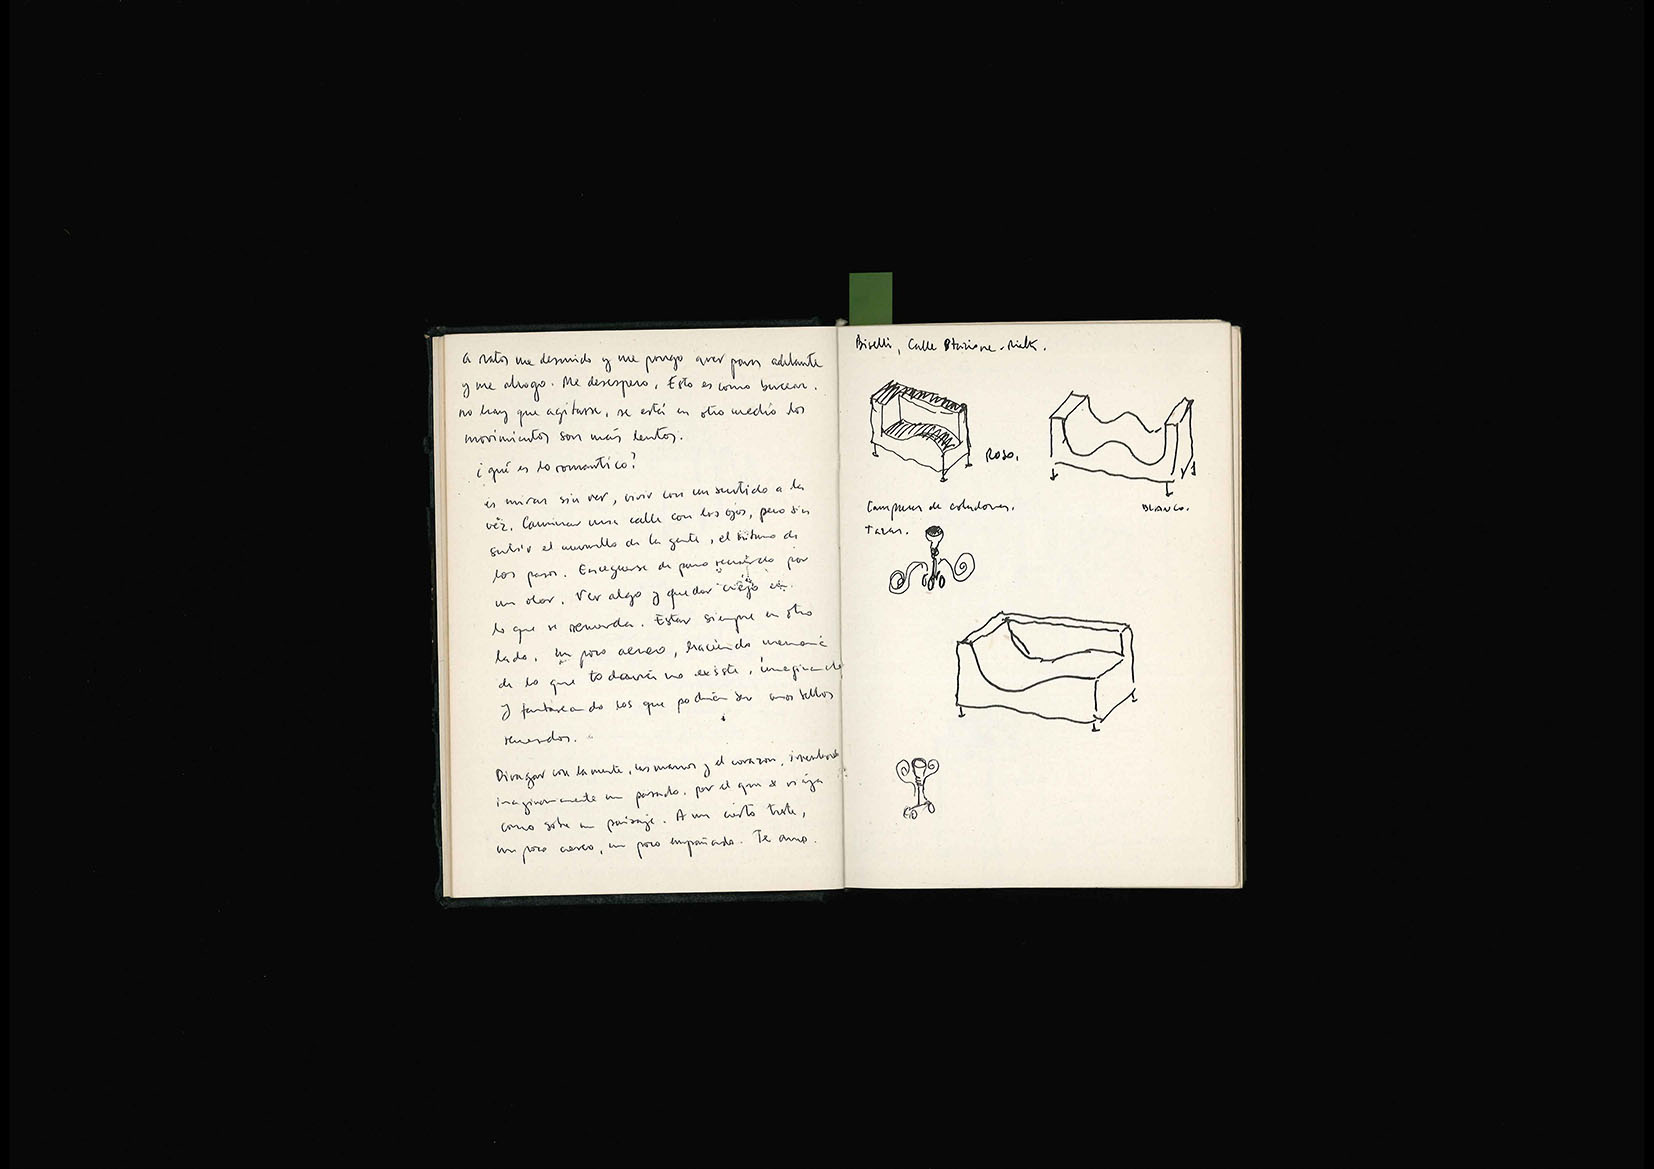 A ratos me desnudo y me pongo a ver para adelante
y me ahogo. Me desespero. Esto es como bucear.
no hay que agitarse, se está en otro medio los
movimientos son más lentos.
¿qué es lo romantico?
es mirar sin ver, vivir con un sentido a la
vez. Caminar una calle con los ojos, pero sin
el murmullo de la gente, el ritmo de
los pasos. Enceguerse de puro recuerdo por
un olor. Ver algo y quedar
lo que se recuerda. Estar siempre en otro
lado. un poco aereo, haciendo memoria
de lo que todavía no existe, imaginando
y fantaseando los que podrían ser unos bellos
recuerdos.
Divagar con la mente, las manos y el corazon,
un pasado. por el que se viaja
como sobre un paisaje. A un cierto trote,
un poco aereo, un poco empañado. Te amo.
Calle
ROJO.
BLANCO.
de coladores.
Tazas.